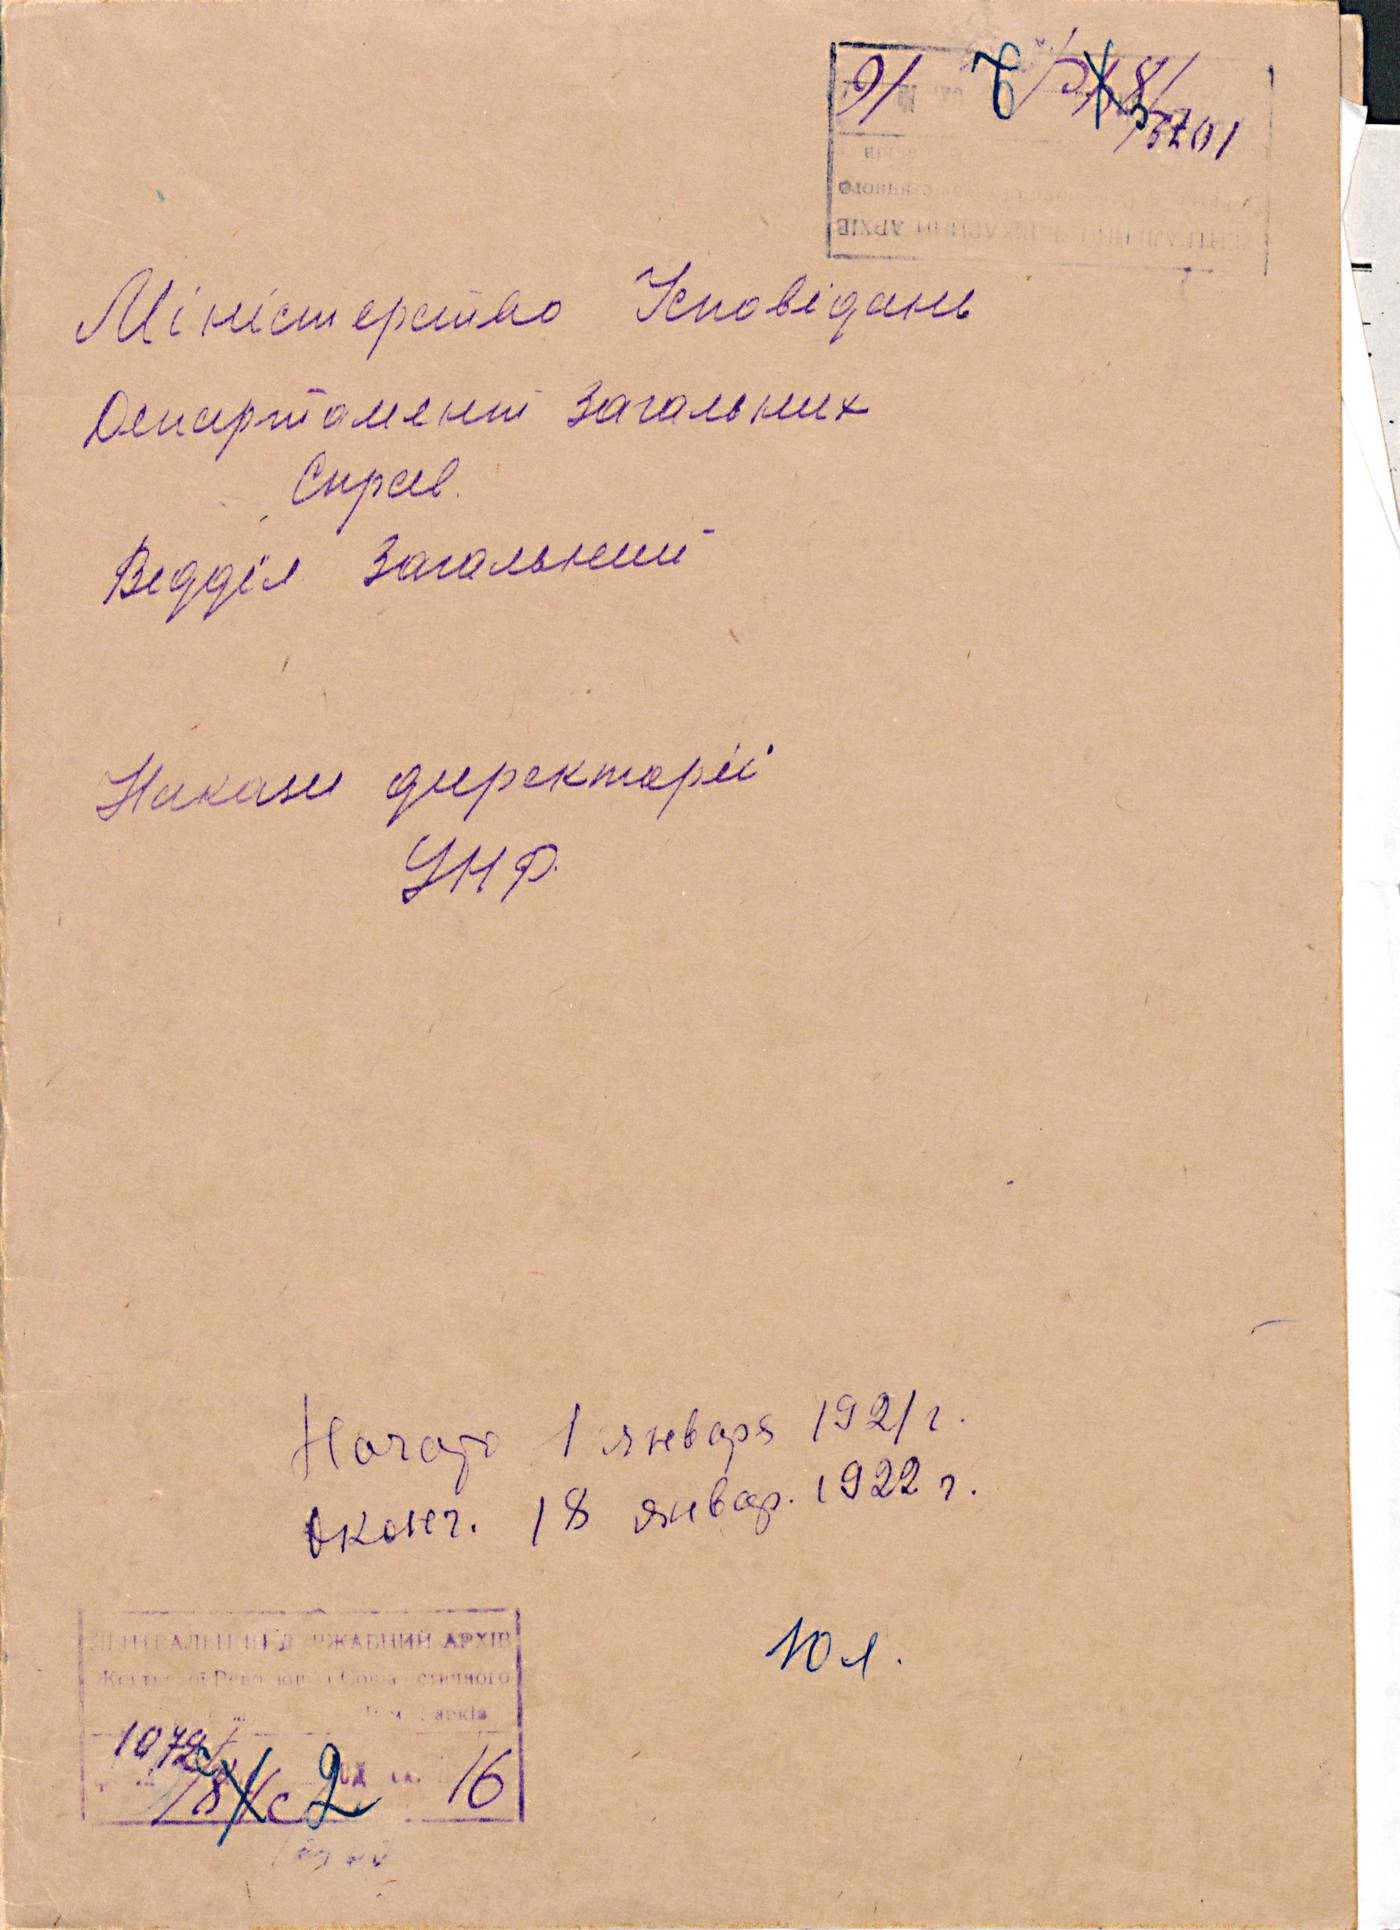 Міністерство Ісповідань
Департамент Загальних
Справ.
Відділ Загальний
Накази директорії
УНР.
Начато 1 января 1921 г.
Оконч. 18 январ. 1922 г.
10 л.
ЦЕНТРАЛЬНИЙ ДЕРЖАВНИЙ АРХІВ
Жовтневої Революції і Соціалістичного
1072
2 16